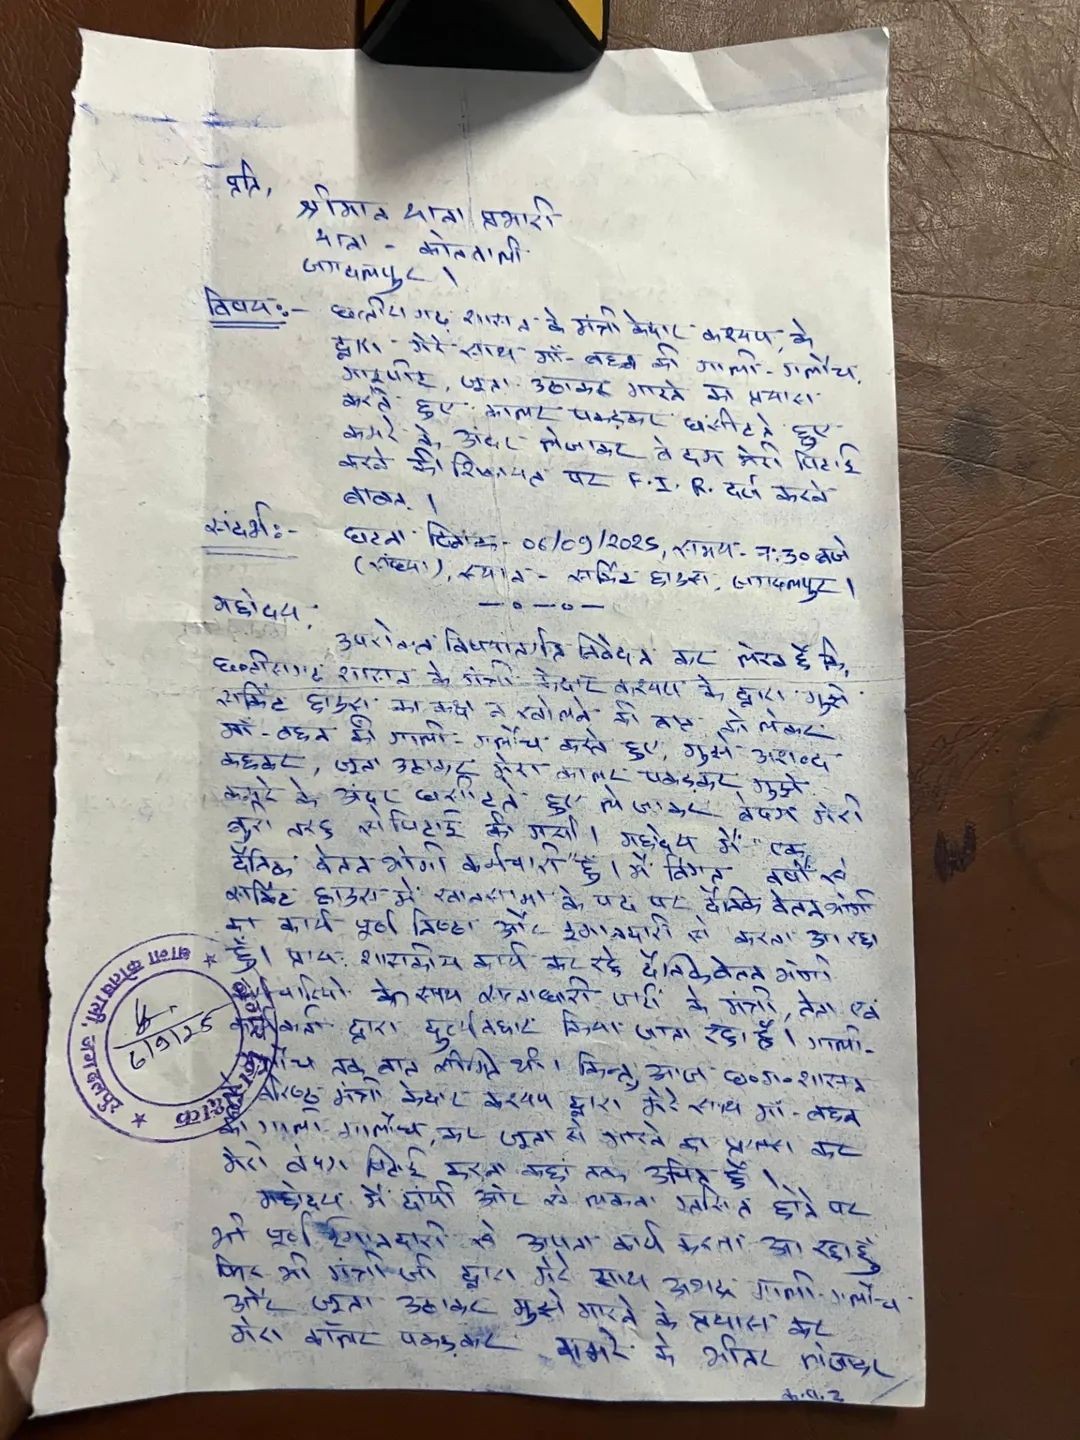 प्रति,
श्रीमान थाना प्रभारी
थाना - कोतवाली
जगदलपुर ।
विषय:- छत्तीसगढ़ शासन के मंत्री केदार कश्यप, के
द्वारा मेरे साथ माँ-बहन की गाली-गलौच,
मारपीट, जूता उठाकर मारने का प्रयास
करते हुए कालर पकड़कर घसीटते हुए
कमरे के अंदर लेजाकर बेदम मेरी पिटाई
करने की शिकायत पर F.I.R. दर्ज करने
बाबत् ।
संदर्भ:- घटना दिनांक - 06/09/2025, समय - 7:30 बजे
(संध्या), स्थान - सर्किट हाउस, जगदलपुर ।
—०—०—
महोदय,
उपरोक्त विषयान्तर्गत निवेदन कर लेख है कि,
छत्तीसगढ़ शासन के मंत्री केदार कश्यप के द्वारा मुझे
सर्किट हाउस का कक्ष न खोलने की बात को लेकर
माँ-बहन की गाली-गलौच करते हुए, मुझे अशब्द
कहकर, जूता उठाकर मेरा कालर पकड़कर मुझे
कमरे के अंदर घसीटते हुए ले जाकर बेदम मेरी
बुरी तरह से पिटाई की गयी । महोदय मैं एक
दैनिक वेतन भोगी कर्मचारी हूँ । मैं विगत वर्षों से
सर्किट हाउस में खानसामा के पद पर दैनिक वेतन भोगी
का कार्य पूर्ण निष्ठा और ईमानदारी से करता आ रहा
हूँ । प्राय: शासकीय कार्य कर रहे दैनिक वेतन भोगी
के साथ सत्ताधारी पार्टी के मंत्री, नेता एवं
द्वारा दुर्व्यवहार किया जाता रहा है । गाली-
तक बात सीमित थी । किन्तु आज छ०ग० शासन
वरिष्ठ मंत्री केदार कश्यप द्वारा मेरे साथ माँ-बहन
की गाली-गलौच, कर जूता से मारने का प्रयास कर
मेरी बेदम पिटाई करना कहां तक उचित है ।
महोदय मैं और से ग्रसित होने पर
भी पूर्ण ईमानदारी से अपना कार्य करता आ रहा हूँ
फिर भी मंत्री जी द्वारा मेरे साथ अभद्र गाली-गलौच
और जूता उठाकर मुझे मारने के प्रयास कर
मेरा कॉलर पकड़कर कमरे के भीतर लेजाकर
थाना कोतवाली, जगदलपुर
6/9/25